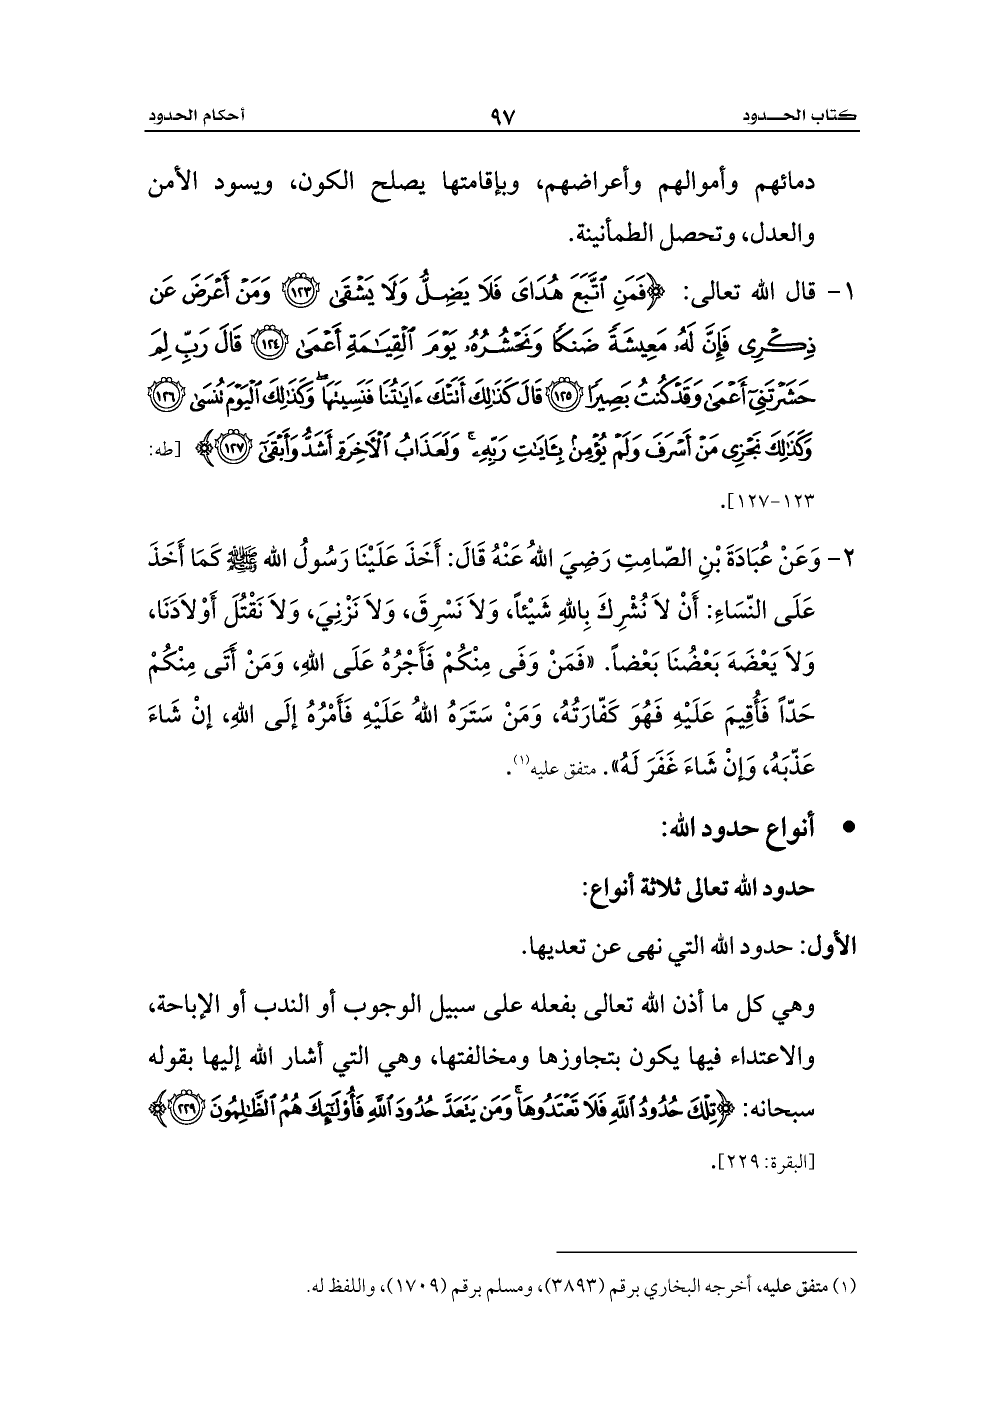 كتاب الحـــدود ٩٧ أحكام الحدود
دمائهم وأموالهم وأعراضهم، وبإقامتها يصلح الكون، ويسود الأمن
والعدل، وتحصل الطمأنينة.
١- قال الله تعالى: ﴿فَمَنِ ٱتَّبَعَ هُدَايَ فَلَا يَضِلُّ وَلَا يَشْقَىٰ ١٢٣ وَمَنْ أَعْرَضَ عَن
ذِكْرِى فَإِنَّ لَهُۥ مَعِيشَةً ضَنكًا وَنَحْشُرُهُۥ يَوْمَ ٱلْقِيَـٰمَةِ أَعْمَىٰ ١٢٤ قَالَ رَبِّ لِمَ
حَشَرْتَنِىٓ أَعْمَىٰ وَقَدْ كُنتُ بَصِيرًا ١٢٥ قَالَ كَذَٰلِكَ أَتَتْكَ ءَايَـٰتُنَا فَنَسِينَهَا ۖ وَكَذَٰلِكَ ٱلْيَوْمَ تُنسَىٰ ١٢٦
وَكَذَٰلِكَ نَجْزِى مَنْ أَسْرَفَ وَلَمْ يُؤْمِنۢ بِـَٔايَـٰتِ رَبِّهِۦ ۚ وَلَعَذَابُ ٱلْـَٔاخِرَةِ أَشَدُّ وَأَبْقَىٰٓ ١٢٧﴾ [طه:
١٢٣-١٢٧].
٢- وَعَنْ عُبَادَةَ بْنِ الصّامِتِ رَضِيَ اللهُ عَنْهُ قَالَ: أَخَذَ عَلَيْنَا رَسُولُ الله ﷺ كَمَا أَخَذَ
عَلَى النّسَاءِ: أَنْ لاَ نُشْرِكَ بِاللهِ شَيْئاً، وَلاَ نَسْرِقَ، وَلاَ نَزْنِيَ، وَلاَ نَقْتُلَ أَوْلاَدَنَا،
وَلاَ يَعْضَهَ بَعْضُنَا بَعْضاً. «فَمَنْ وَفَى مِنْكُمْ فَأَجْرُهُ عَلَى اللهِ، وَمَنْ أَتَى مِنْكُمْ
حَدّاً فَأُقِيمَ عَلَيْهِ فَهُوَ كَفّارَتُهُ، وَمَنْ سَتَرَهُ اللهُ عَلَيْهِ فَأَمْرُهُ إلَى اللهِ، إنْ شَاءَ
عَذّبَهُ، وَإنْ شَاءَ غَفَرَ لَهُ». متفق عليه(١).
● أنواع حدود الله:
حدود الله تعالى ثلاثة أنواع:
الأول: حدود الله التي نهى عن تعديها.
وهي كل ما أذن الله تعالى بفعله على سبيل الوجوب أو الندب أو الإباحة،
والاعتداء فيها يكون بتجاوزها ومخالفتها، وهي التي أشار الله إليها بقوله
سبحانه: ﴿تِلْكَ حُدُودُ ٱللَّهِ فَلَا تَعْتَدُوهَا ۚ وَمَن يَتَعَدَّ حُدُودَ ٱللَّهِ فَأُو۟لَـٰٓئِكَ هُمُ ٱلظَّـٰلِمُونَ ٢٢٩﴾
[البقرة: ٢٢٩].
(١) متفق عليه، أخرجه البخاري برقم (٣٨٩٣)، ومسلم برقم (١٧٠٩)، واللفظ له.